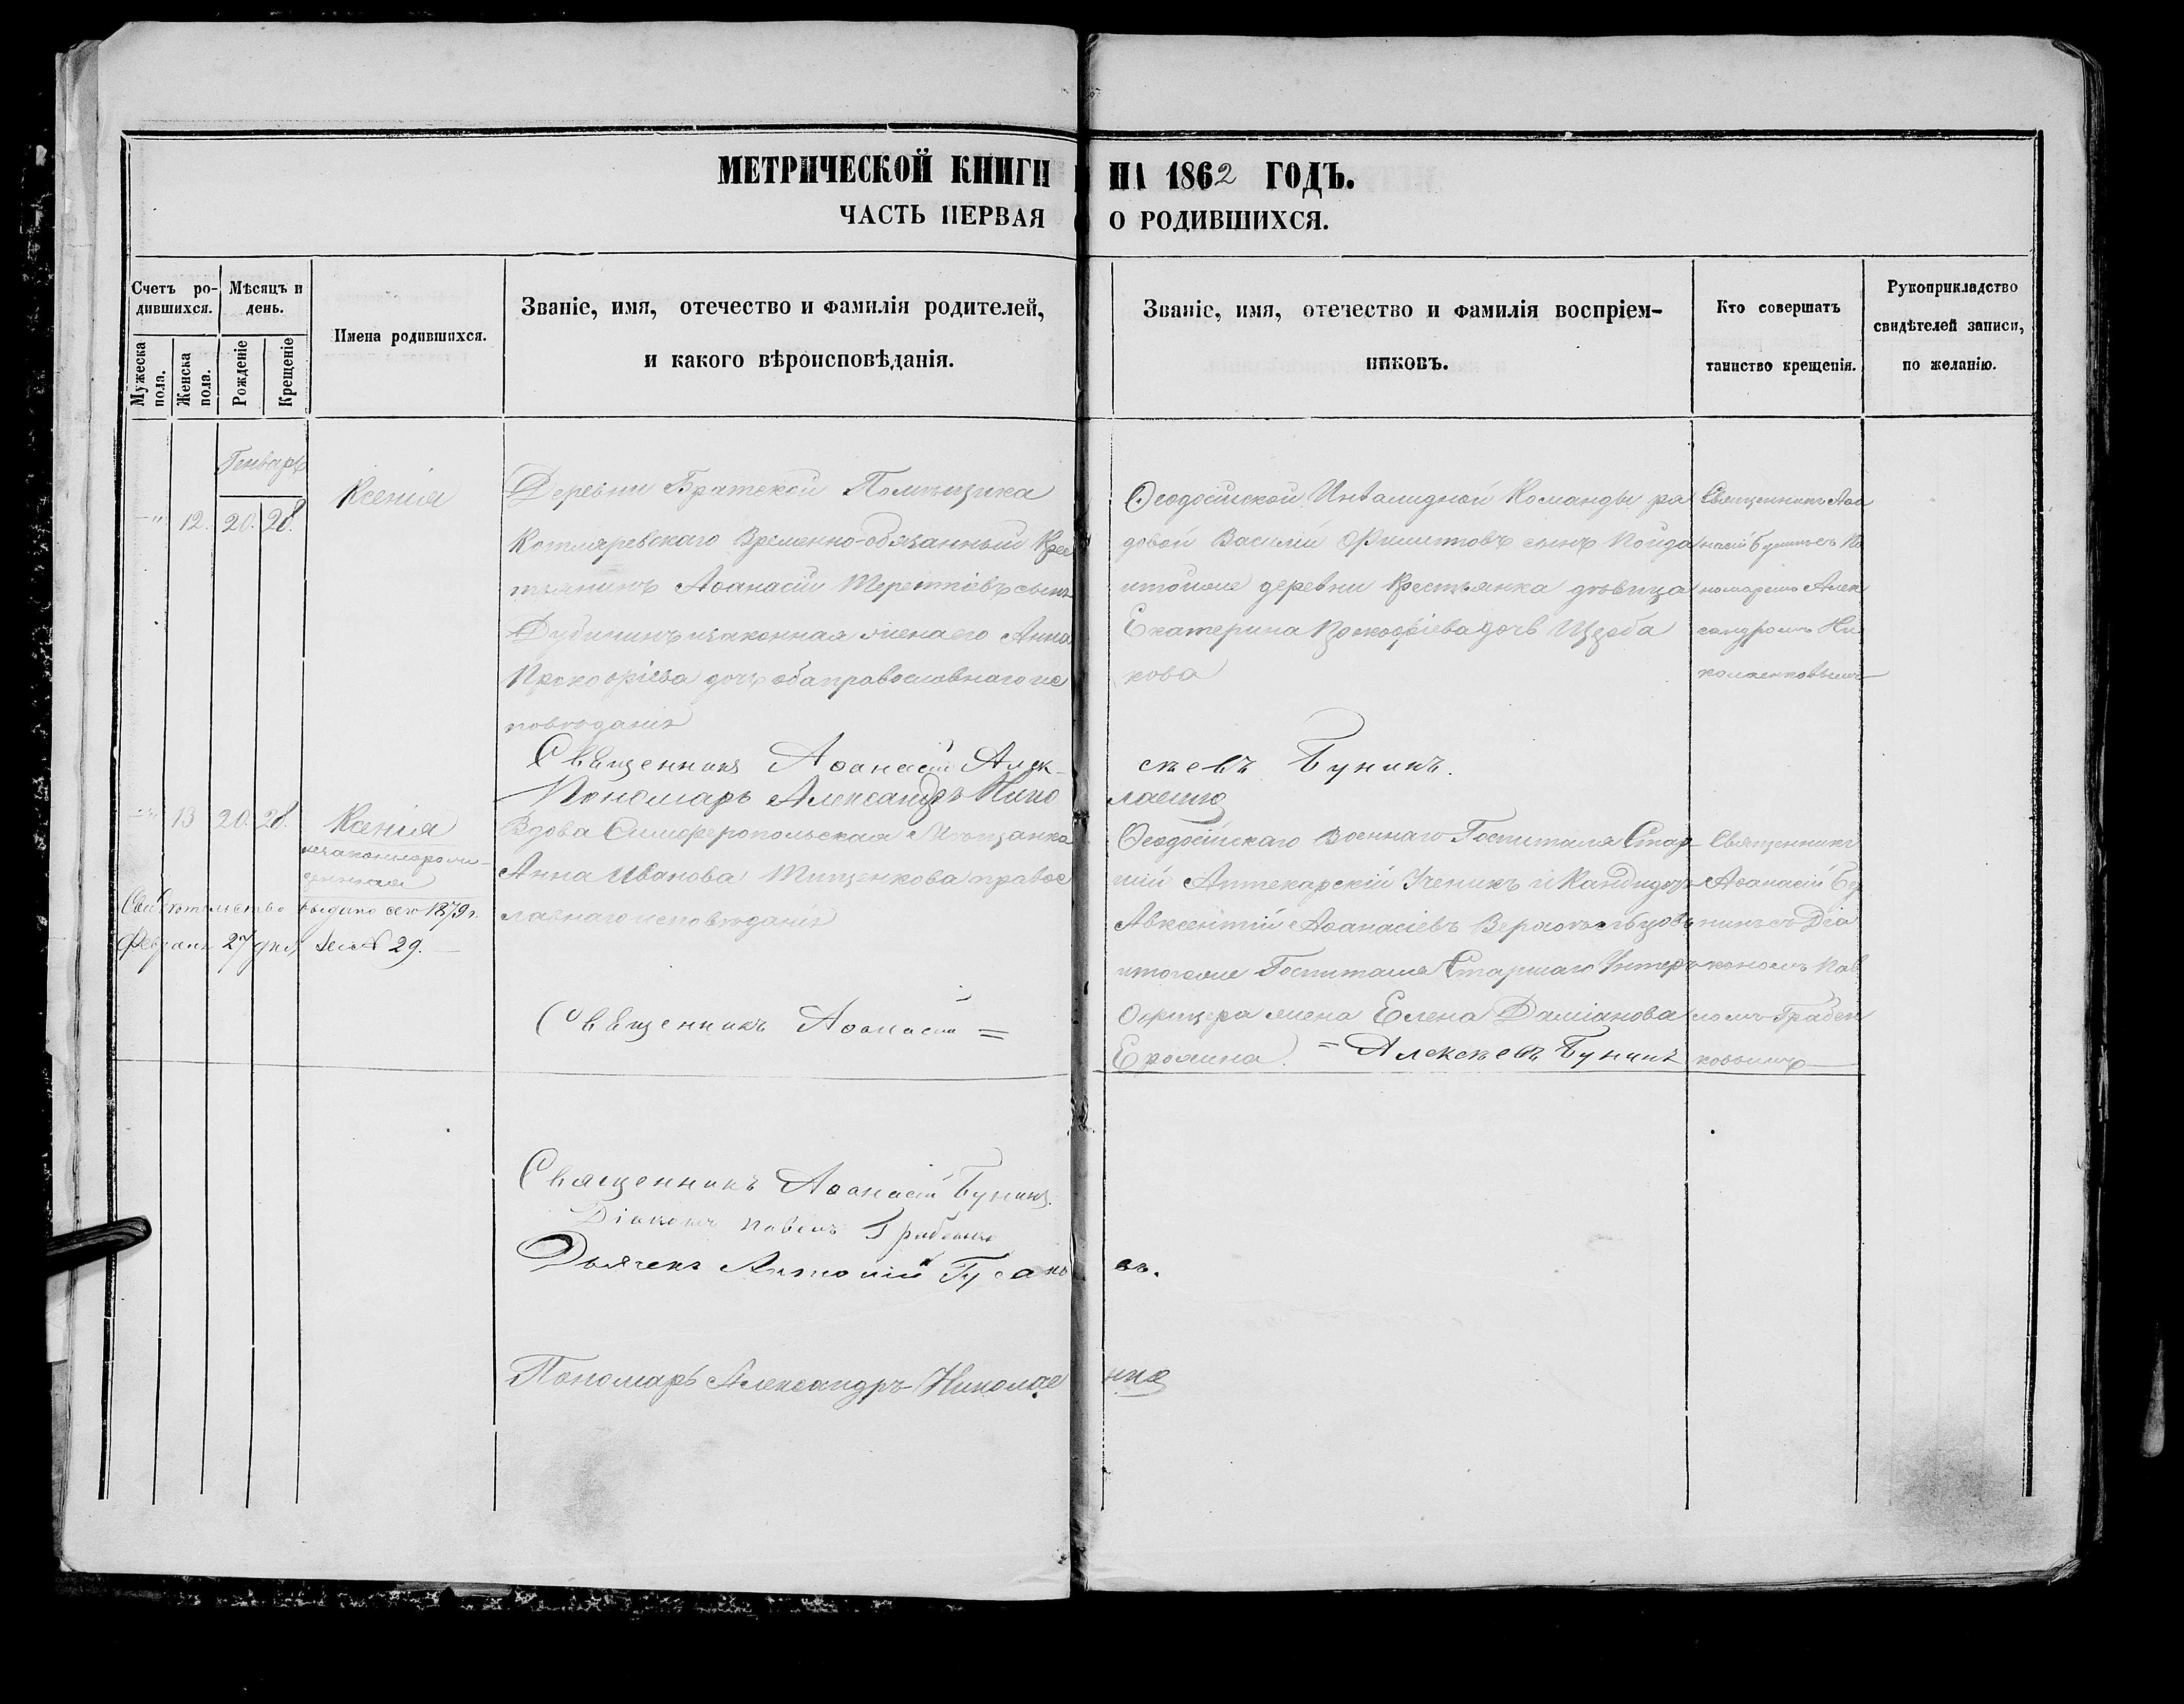 МЕТРИЧЕСКОЙ КНИГИ НА 1862 ГОДЪ.
ЧАСТЬ ПЕРВАЯ О РОДИВШИХСЯ.
Счетъ ро-
дившихся.
Мужеска
пола.
Женска
пола.
Мѣсяцъ и
день.
Рожденіе
Крещеніе
Имена родившихся.
Званіе, имя, отечество и фамилія родителей,
и какого вѣроисповѣданія.
Званіе, имя, отечество и фамилія воспріем-
никовъ.
Кто совершатъ
таинство крещенія.
Рукоприкладство
свидѣтелей записи,
по желанію.
Генварь
12. 20. 28.
Ксенія
Деревни Братской Помѣщика
Котляревскаго Временно-обязанный Крес
тьянинъ Аѳанасій Терентіевъ сынъ
Дубининъ и законная жена его Анна
Прокофіева дочь оба православнаго ис
повѣданія
Ѳеодосійской Инвалидной Команды ря
довой Василій Филиповъ сынъ
итойже деревни Крестьянка дѣвица
Екатерина Прокофіева дочь Щерба
кова
Священникъ Аѳа
насій Бунинъ съ По
номаремъ Алек
сандромъ Ни
колаенковымъ
Священникъ Аѳанасій Алек-
сѣевъ Бунинъ.
Пономарь Александръ Нико
лаенко
13 20. 28.
Ксенія
незаконнорож-
денная
Свидѣтельство выдано сего 1879 г.
Февраля 27 дня за № 29.
Вдова Симферопольская Мѣщанка
Анна Иванова Тищенкова правос
лавнаго исповѣданія
Ѳеодосійскаго Военнаго Госпиталя Стар-
шій Аптекарскій Ученикъ и Кандидатъ
Авксентій Аѳанасіевъ
итогоже Госпиталя Старшаго Унтеръ
Офицера жена Елена Даміанова
Ерохина
Священникъ
Аѳанасій Бу
нинъ съ Діа
кономъ Пав
ломъ Грабен
ковымъ
Священникъ Аѳанасій =
= Алексѣевъ Бунинъ
Священникъ Аѳанасій Бунинъ.
Діаконъ Павелъ Грабенко
Дьячекъ Антоній Гусаковъ.
Пономарь Александръ Николаенко